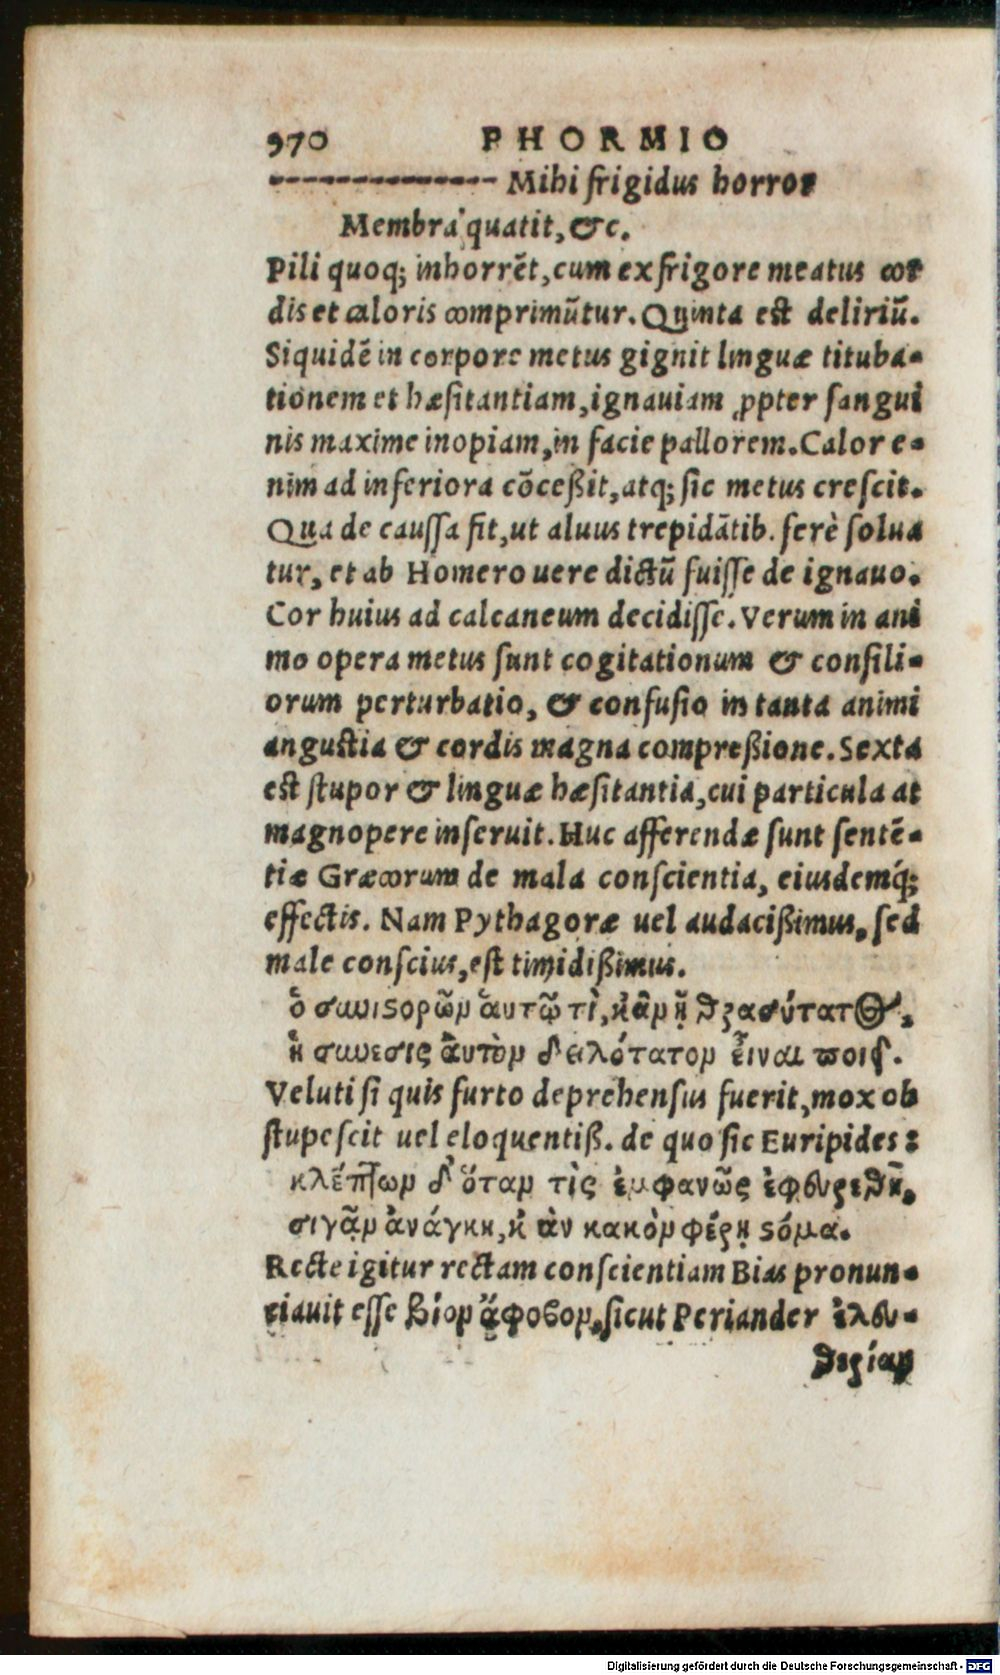 970 PHORMIO
-------------- Mihi frigidus horror
Membra quatit, &c.
Pili quoq; inhorrẽt, cum ex frigore meatus cor
dis et caloris comprimũtur. Quinta est deliriũ.
Siquidẽ in corpore metus gignit linguæ tituba-
tionem et hæsitantiam, ignauiam ꝓpter sangui
nis maxime inopiam, in facie pallorem. Calor e-
nim ad inferiora cõceßit, atq; sic metus crescit.
Qua de caussa fit, ut aluus trepidãtib. ferè solua
tur, et ab Homero uere dictũ fuisse de ignauo.
Cor huius ad calcaneum decidisse. Verum in ani
mo opera metus sunt cogitationum & consili-
orum perturbatio, & confusio in tanta animi
angustia & cordis magna compreßione. Sexta
est stupor & linguæ hæsitantia, cui particula at
magnopere inseruit. Huc afferendæ sunt sentẽ-
tiæ Græcorum de mala conscientia, eiusdemq́;
effectis. Nam Pythagoræ uel audacißimus, sed
male conscius, est timidißimus.
ὁ συνιϛορῶν ἁυτῷ τὶ, κἂν ᾖ θρασύτατΘ,
ἡ συνεσις ἂυτὸν δειλότατον ἒιναι ποιεῖ.
Veluti si quis furto deprehensus fuerit, mox ob
stupescit uel eloquentiß. de quo sic Euripides:
κλέπτων δ' ὅταν τὶς ἐμφανῶς ἐφευρεθῇ,
σιγᾷν ἀνάγκη, κἀν κακὸν φέρῃ ϛόμα.
Recte igitur rectam conscientiam Bias pronun-
tiauit esse βίον ἄφοβον, sicut Periander ἐλευ-
θερίαν
Digitalisierung gefördert durch die Deutsche Forschungsgemeinschaft - DFG